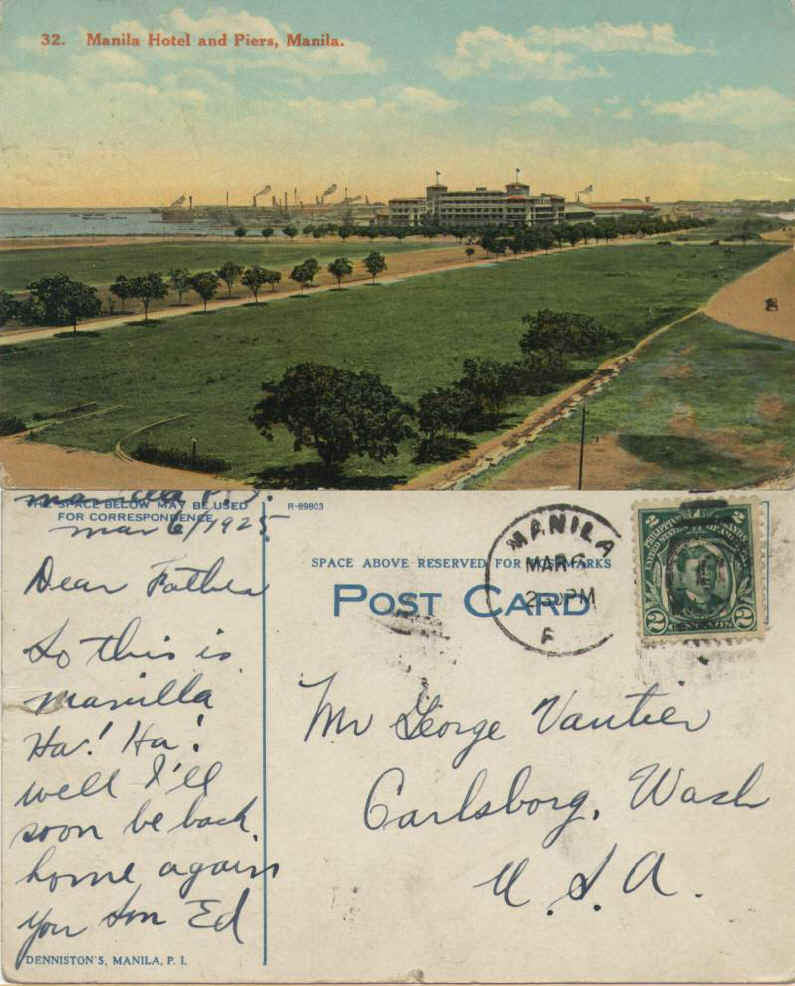 32. Manila Hotel and Piers, Manila.
manilla P.I.
THE SPACE BELOW MAY BE USED
FOR CORRESPONDENCE
mar 6/1925
R-89803
Dear Father
So this is
manilla
Ha! Ha!
well I'll
soon be back
home again
your son Ed
DENNISTON'S, MANILA, P. I.
SPACE ABOVE RESERVED FOR POSTMARKS
POST CARD
MANILA
MAR 6
2 30 PM
2 2
PHILIPPINE
UNITED STATES OF AMERICA
2 CENTAVOS 2
Mr George Vautier
Carlsborg, Wash
U.S.A.